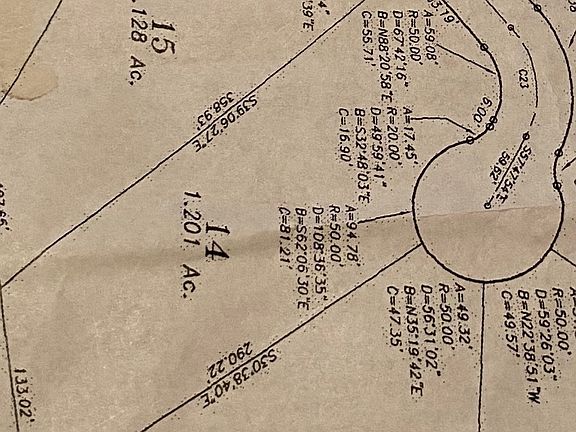 15
.128 Ac.
S39°06'27"E
358.93'
14
1.201 Ac.
A=59.08'
R=50.00'
D=67°42'16"
B=N88°20'58"E
C=55.71'
A=17.45'
R=20.00'
D=49°59'41"
B=S32°48'03"E
C=16.90'
5.00'
C23
S51°47'54"E
59.62'
A=94.78'
R=50.00'
D=108°36'35"
B=S62°06'30"E
C=81.21'
A=49.32'
R=50.00'
D=56°31'02"
B=N35°19'42"E
C=47.35'
R=50.00'
D=59°26'03"
B=N22°38'51"W
C=49.57'
S30°38'40"E
290.22'
133.02'